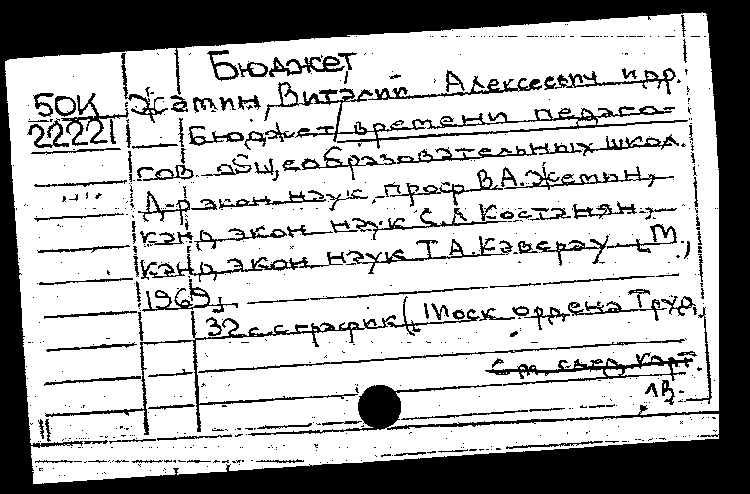 Бюджет
50К Жамин, Виталий Алексеевич и др.
22221 Бюджет времени педаго-
гов общеобразовательных школ.
Д-р экон. наук, проф. В.А. Жамин,
канд. экон. наук С.Л. Костанян,
канд. экон. наук Т.А. Каверау. М.,
1969.
32 с. с график. (Моск. ордена Труд.
См. след. карт.